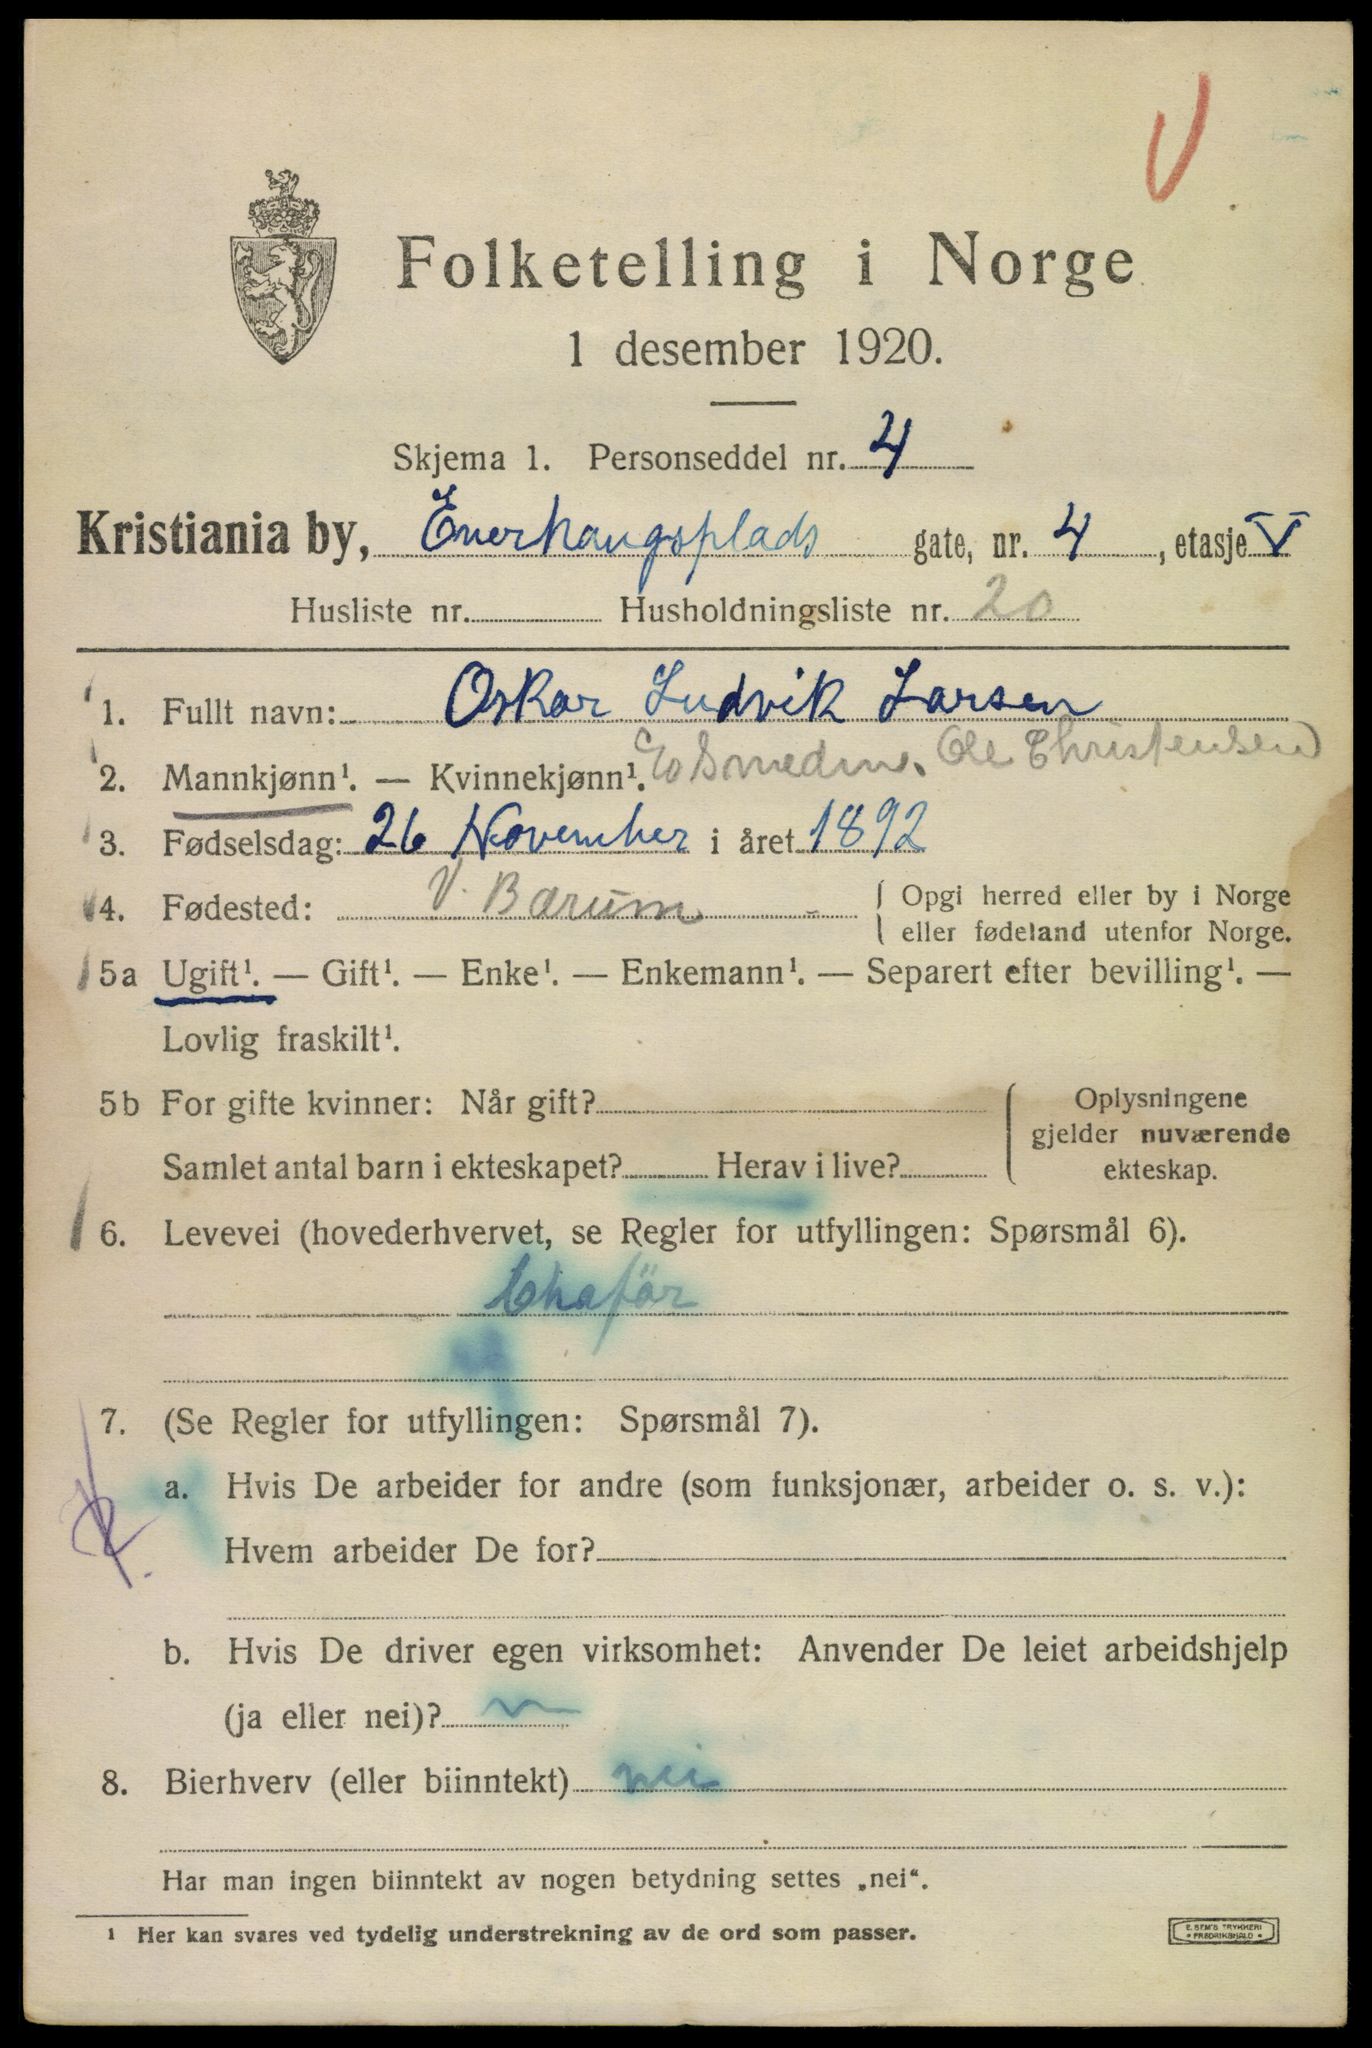 V
Folketelling i Norge
1 desember 1920.
Skjema 1. Personseddel nr. 4
Kristiania by, Enerhaugsplads gate, nr. 4, etasje V
Husliste nr. Husholdningsliste nr. 20
1. Fullt navn: Oskar Ludvik Larsen
2. Mannkjønn¹. — Kvinnekjønn¹. Ole Christensen)
3. Fødselsdag: 26 November i året 1892
4. Fødested: V. Bærum { Opgi herred eller by i Norge
eller fødeland utenfor Norge.
5a Ugift¹. — Gift¹. — Enke¹. — Enkemann¹. — Separert efter bevilling¹. —
Lovlig fraskilt¹.
5b For gifte kvinner: Når gift? Oplysningene
gjelder nuværende
Samlet antal barn i ekteskapet? Herav i live? ekteskap.
6. Levevei (hovederhvervet, se Regler for utfyllingen: Spørsmål 6).
Chaför
7. (Se Regler for utfyllingen: Spørsmål 7).
a. Hvis De arbeider for andre (som funksjonær, arbeider o. s. v.):
Hvem arbeider De for?
b. Hvis De driver egen virksomhet: Anvender De leiet arbeidshjelp
(ja eller nei)?
8. Bierhverv (eller biinntekt) nei
Har man ingen biinntekt av nogen betydning settes „nei“.
¹ Her kan svares ved tydelig understrekning av de ord som passer.
E. SEM'S TRYKKERI
• FREDRIKSHALD •